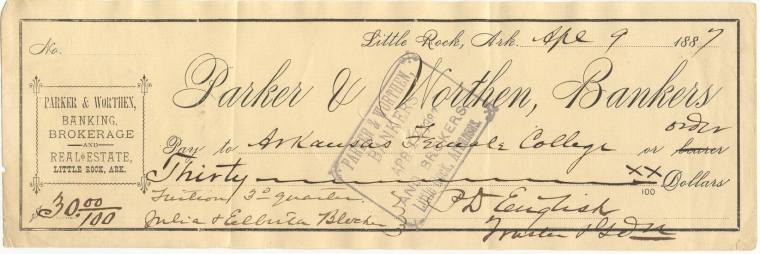 No.
Little Rock, Ark. Apl 9 1887
Parker & Worthen, Bankers
PARKER & WORTHEN,
BANKING,
BROKERAGE
AND
REAL ESTATE,
LITTLE ROCK, ARK.
order
Pay to Arkansas Female College or bearer
Thirty XX/100 Dollars
$30.00/100
Tuition 3d quarter
Julia & Blocher
P D English
Trustee
PARKER & WORTHEN,
BANKERS
APR
AND BROKERS
LITTLE ROCK, ARKANSAS.